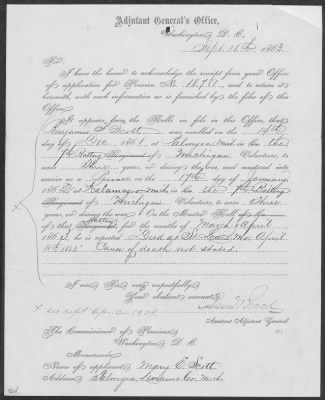 Adjutant General's Office,
Washington, D. C.
Sept. 18th, 1863.
Sir:
I have the honor to acknowledge the receipt from your Office
of application for Pension No. 18.781, and to return it
herewith, with such information as is furnished by the files of this
Office.
It appears, from the Rolls on file in this Office, that
Benjamin F. Scott was enrolled on the 14th
day of Dec, 1861, at Palmyra, Mich in the
7th Battery Regiment of Michigan Volunteers, to
serve Three years, or during the war, and mustered into
service as a Private on the 17th day of January,
1862, at Kalamazoo, Mich, in Co. the 7th Battery
Regiment of Michigan Volunteers, to serve Three
years, or during the war. On the Muster Roll of Co.
of that Battery Regiment, for the months of March & April,
1863, he is reported "Died at St. Louis Mo. April
1863." Cause of death not stated.
I am, Sir, very respectfully,
Your obedient servant,
Assistant Adjutant General.
The Commissioner of Pensions,
Washington, D. C.
Memoranda:
Name of applicant, Mary E. Scott
Address, Palmyra, Lenawee Co. Mich